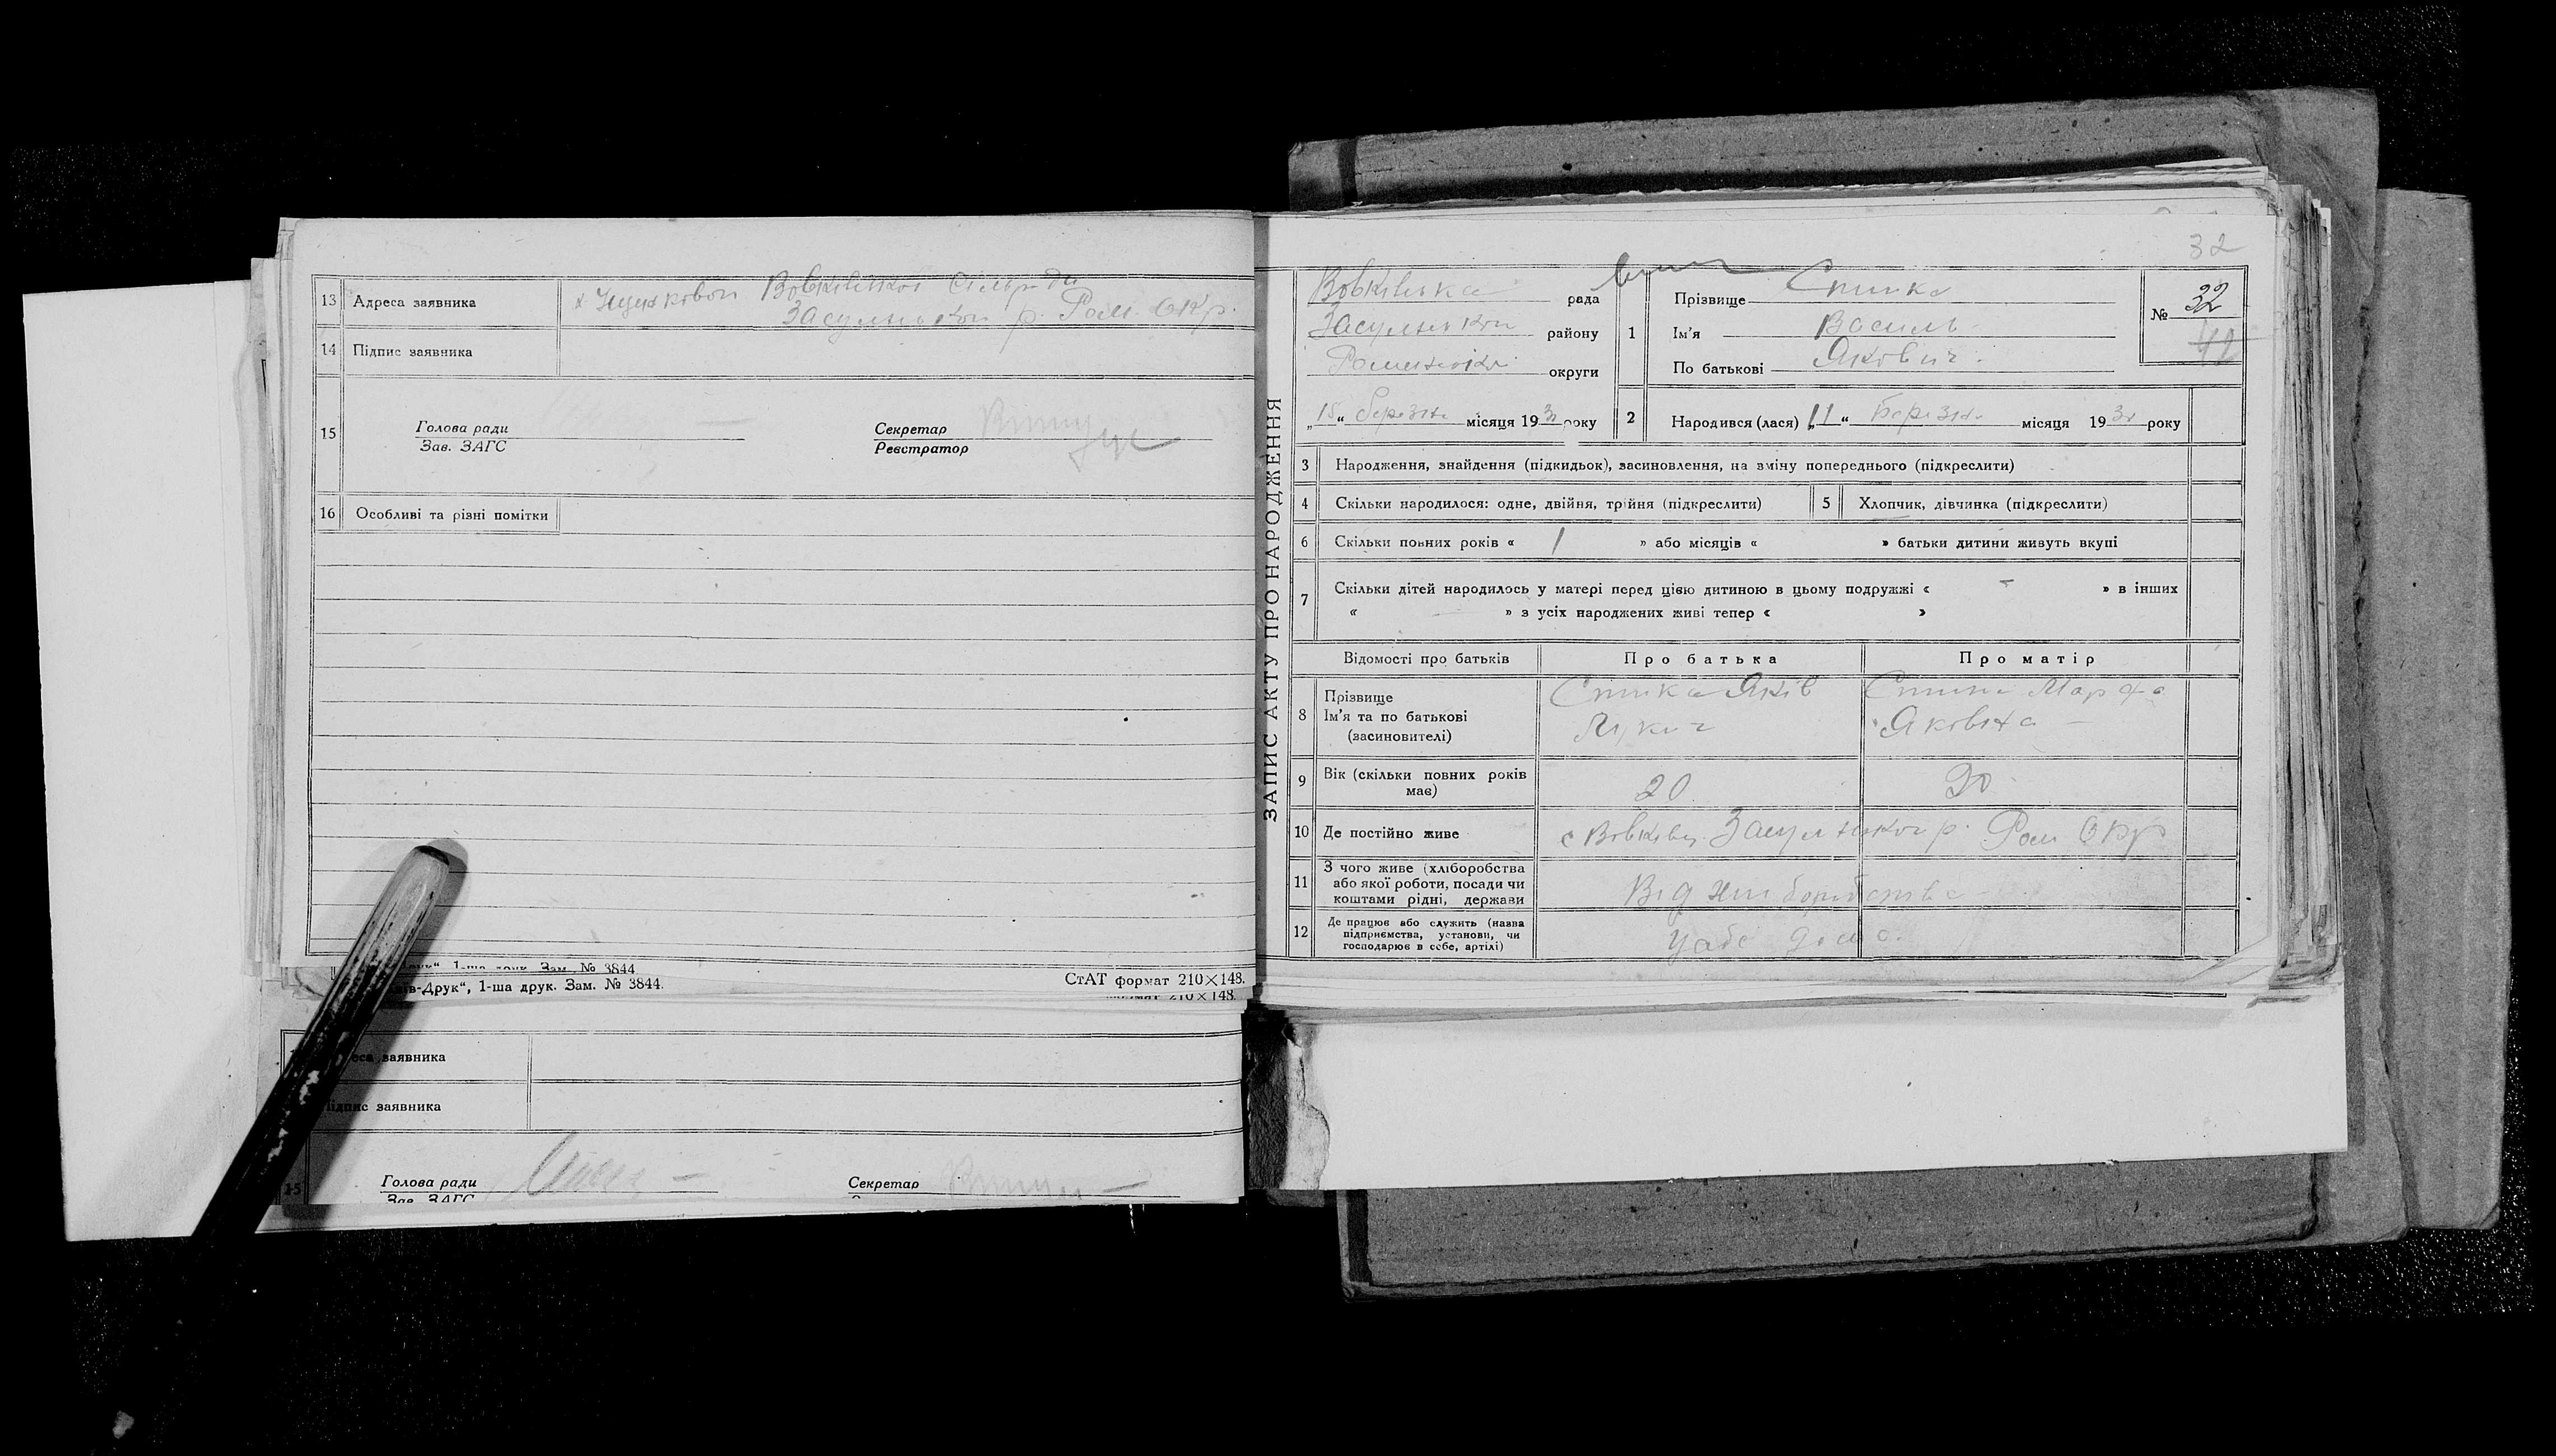 13 Адреса заявника Вовківської Сільради
Засульського р. Ром. Окр.
14 Підпис заявника
15 Голова ради
Зав. ЗАГС
Секретар
Реєстратор
16 Особливі та різні помітки
1-ша друк. Зам. № 3844
в-Друк“, 1-ша друк. Зам. № 3844.
СтАТ формат 210×148.
210×148.
заявника
заявника
15 Голова ради
Зав. ЗАГС
Секретар
ЗАПИС АКТУ ПРО НАРОДЖЕННЯ
32
Вовківська рада
Засульського району
Роменської округи
„15“ березня місяця 1930 року
1 Прізвище Спилка
Ім'я Василь
По батькові Якович
№ 32
41
2 Народився (лася) „11“ Березня місяця 1930 року
3 Народження, знайдення (підкидьок), засиновлення, на зміну попереднього (підкреслити)
4 Скільки народилося: одне, двійня, трійня (підкреслити)
5 Хлопчик, дівчинка (підкреслити)
6 Скільки повних років « 1 » або місяців « » батьки дитини живуть вкупі
7 Скільки дітей народилось у матері перед цією дитиною в цьому подружжі « - » в інших
« — » з усіх народжених живі тепер « »
Відомості про батьків Про батька Про матір
8 Прізвище
Ім'я та по батькові
(засиновителі)
Яків
Лукич
Марфа
Яковна
9 Вік (скільки повних років
має)
20 20
10 Де постійно живе с Вовківці Засульського р. Ром Окр
11 З чого живе (хліборобства
або якої роботи, посади чи
коштами рідні, держави
Від хліборобства
12 Де працює або служить (назва
підприємства, установи, чи
господарює в себе, артілі)
У себе дома.